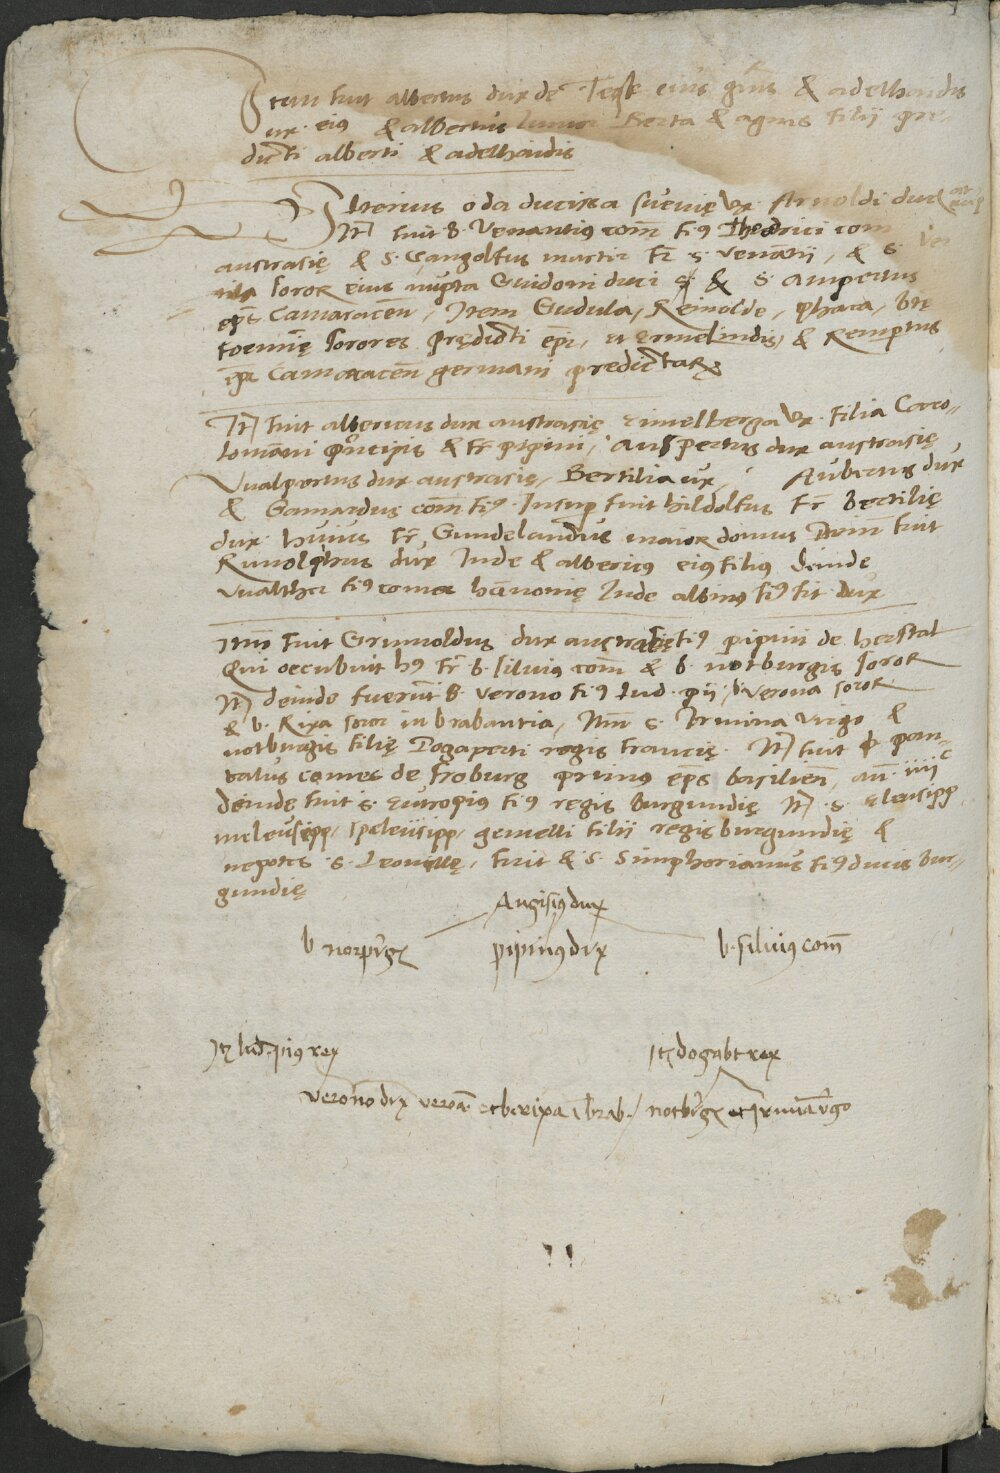 Item fuit albertus dux de Teck eius & adelhaidis
ux. eiꝰ & albertus Iunior Berta & agnes filij pre-
dicti alberti & adelhaidis
Iterius oda ducissa sueuię vx. Arnoldi duc
Itē fuit B. Venantius com̄ fiꝰ Theodrici com
austrasię & S. Gangolfus martir fr̄ s. venātij, & S.
soror eius nupta Guidoni duci & S. Ampertus
ep̄s Camaracen̄, Item Gudula, Reinolde, phara,
foeminę sorores prędicti ep̄i, et ermelindis, & Rempertus
Camaracen̄ germani predictarꝝ
Itē fuit albericus dux austrasię eimelberga vx. filia Caro-
lomāni principis & fr̄ pipini, Anspertus dux austrasię
Vualpertus dux austrasię, Bertilia ux, Aubertus dux
& Gamardus com̄ fiꝰ. Insup fuit hildolfus fr̄ Bertilię
dux. huius fr̄, Gundelandus maior domus Deim̄ fuit
Runolphus dux Inde & albericus eiꝰ filius deinde
Vualther fiꝰ comes hānonię Inde albinꝰ fiꝰ fit dux
Itm̄ fuit Grimoldus dux austrasię fiꝰ pipini de herstal
Qui occubuit hꝰ fr̄ b. siluius com̄ & b. notburgis soror
Itē deinde fuerūt B. verono fiꝰ Lud. pij, b. verona soror
& b. Rixa soror in brabantia, Itm̄ s. Irmina virgo &
notburgis filię Dogaperti regis francię. Itē fuit pan-
talus comes de froburg primus ep̄s basilien̄, an̄. iiii c
deinde fuit s. eutropius fiꝰ regis burgundię Itē. s. eleusipp
meleusipp, speleusipp, gemelli filij regis burgundię &
nepotes s. Leonillę, fuit & S. Simphorianus fiꝰ ducis bur-
gundię
Angisiꝰ dux
b norpꝛg pipinꝰ dux b. siluiꝰ com̄
Itē lud. piꝰ rex Itē dogabt rex
Verono dux veroā et b. rixa ī brab. / notbꝛg et Irmīa v̄go